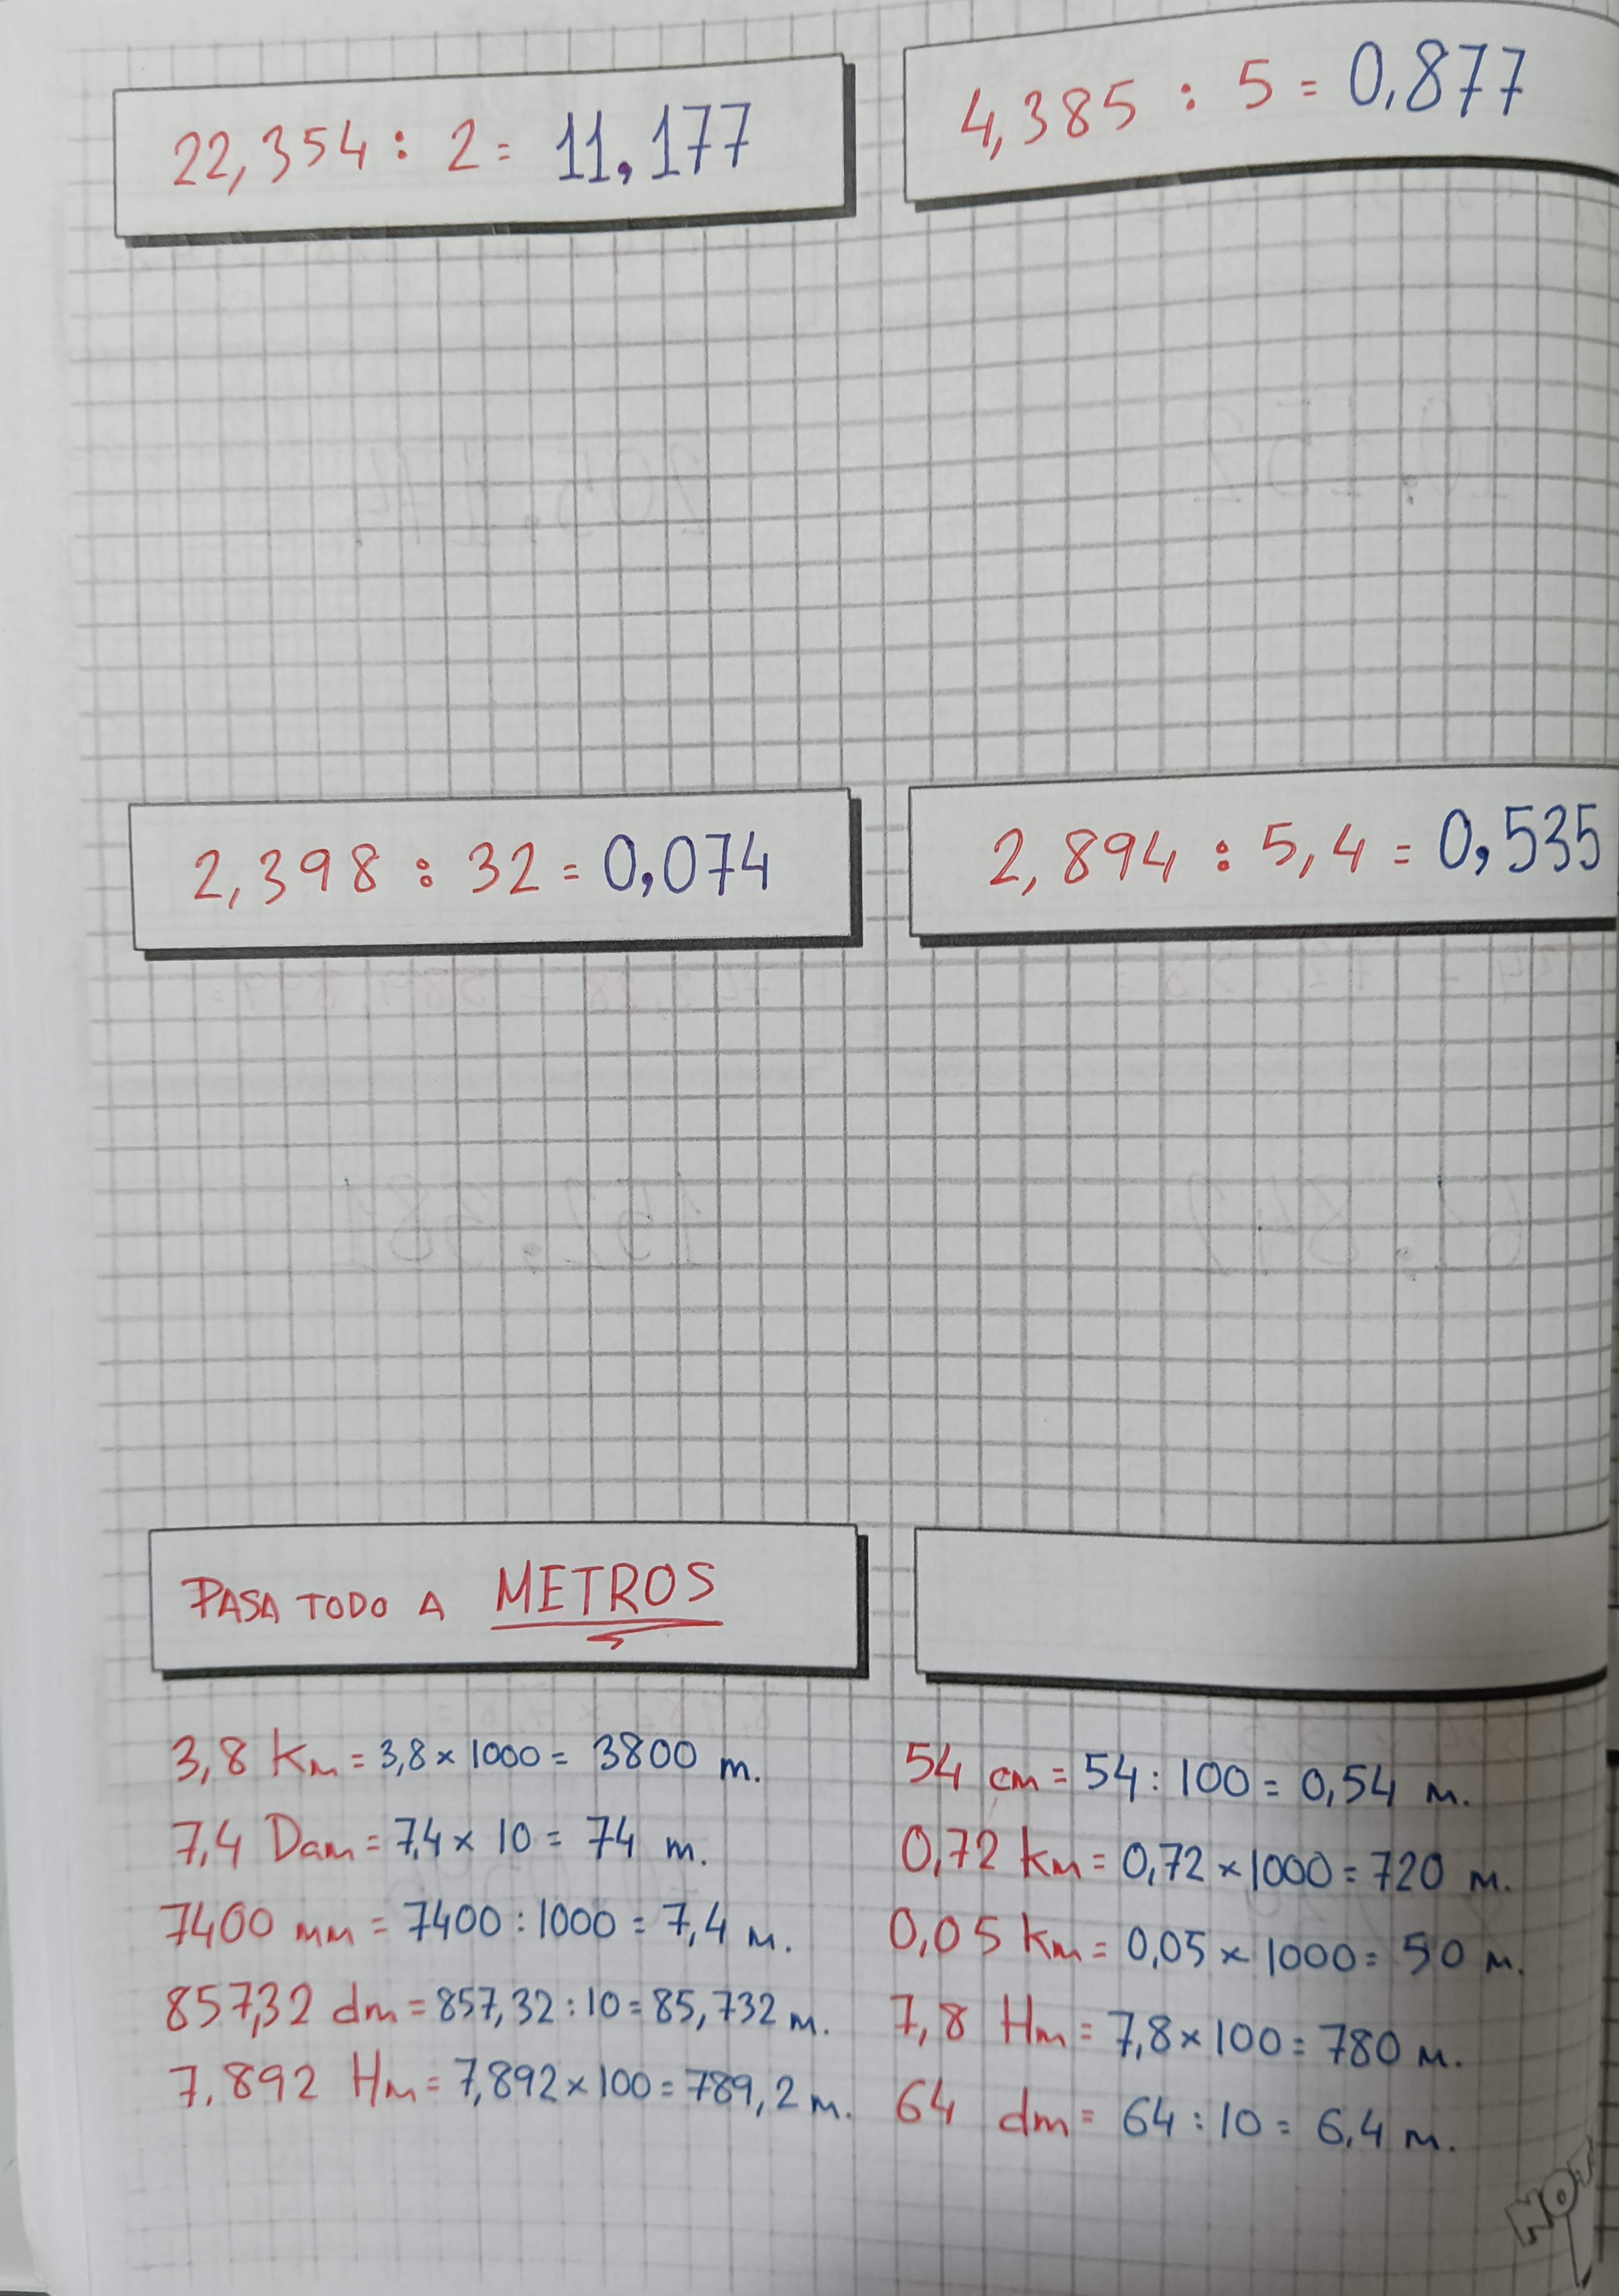 22,354 : 2 = 11,177
4,385 : 5 = 0,877
2,398 : 32 = 0,074
2,894 : 5,4 = 0,535
PASA TODO A METROS
3,8 Km = 3,8 x 1000 = 3800 m.
7,4 Dam = 7,4 x 10 = 74 m.
7400 mm = 7400 : 1000 = 7,4 m.
857,32 dm = 857,32 : 10 = 85,732 m.
7,892 Hm = 7,892 x 100 = 789,2 m.
54 cm = 54 : 100 = 0,54 m.
0,72 km = 0,72 x 1000 = 720 m.
0,05 km = 0,05 x 1000 = 50 m.
7,8 Hm = 7,8 x 100 = 780 m.
64 dm = 64 : 10 = 6,4 m.